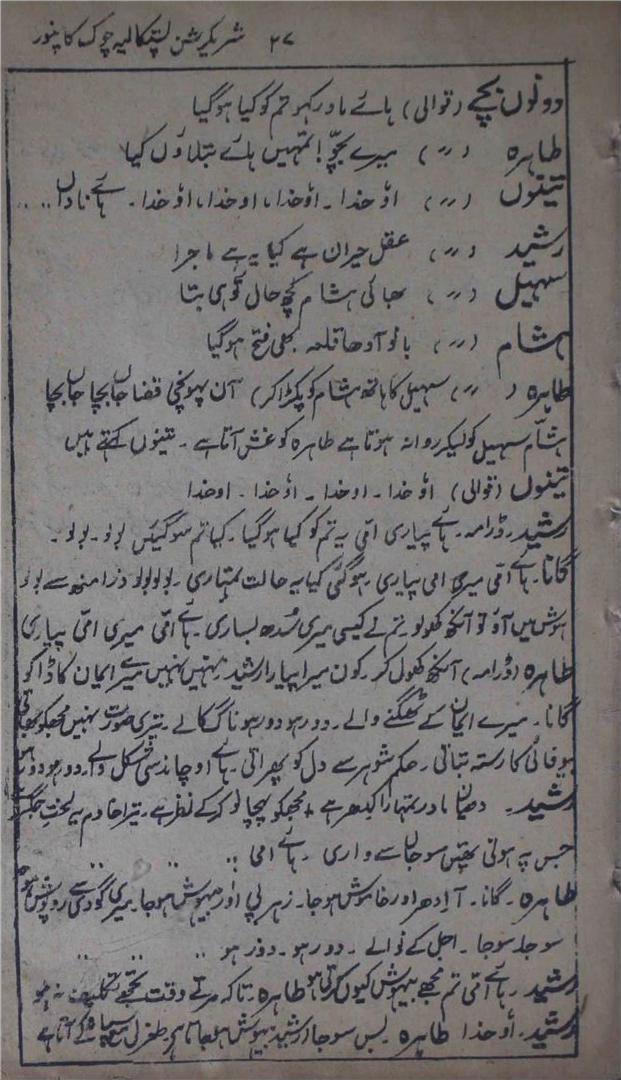 ۲۷ شریکرشن پستکالیہ چوک کانپور
دونوں بچے (قوالی) ہائے مادر کہو تم کو کیا ہوگیا
طاہرہ (〃) میرے بچّو! تمہیں ہائے بتلاؤں کیا
تینوں (〃) اؤ خدا۔ اؤ خدا، او خدا، اؤ خدا۔ ہائے ناداں....
رشید (〃) عقل حیران ہے کیا یہ ہے ماجرا
سہیل (〃) بھائی ہشام کچھ حال تو ہی بتا
ہشام (〃) بانو آدھا قلعہ بھی فتح ہوگیا
طاہرہ (〃) سہیل کا ہاتھ ہشام کو پکڑا کر) آن پہونچی قضا جاں بچا جاں بچا
ہشام سہیل کو لیکر روانہ ہوتا ہے طاہرہ کو غش آتا ہے۔ تینوں کہتے ہیں
تینوں (قوالی) اؤ خدا۔ او خدا۔ اؤ خدا۔ او خدا
رشید۔ ڈرامہ۔ ہائے پیاری امّی یہ تم کو کیا ہوگیا۔ کیا تم سوگئیں بولو۔ بولو۔
گانا۔ ہائے امّی میری امی پیاری۔ ہوگئی کیا یہ حالت تمہاری۔ بولو بولو ذرا منھ سے بولو
ہوش میں آؤ تو آنکھ کھولو۔ تم نے کیسی میری سُدھ بساری۔ ہائے امّی میری امّی پیاری
طاہرہ (ڈرامہ) آنکھ کھول کر۔ کون میرا پیارا رشید۔ نہیں نہیں میرے ایمان کا ڈاکو
گانا۔ میرے ایمان کے ٹھگنے والے۔ دور ہو دور ہو ناگ کالے۔ تیری صورت نہیں مجھکو بھاتی
بیوفائی کا رستہ بتاتی۔ حکم شوہر سے دل کو پھراتی۔ ہائے او چاند سی شکل والے۔ دور ہو دور ہو
رشید۔ دھیان مادر تمہارا کدھر ہے + مجھکو پہچانو کرکے نظر ہے۔ تیرا خادم یہ لخت جگر
جس پہ ہوتی تھیں سو جاں سے واری۔ ہائے امی..
طاہرہ۔ گانا۔ آ ادھر اور خاموش ہوجا۔ زہر پی اور بیہوش ہوجا۔ میری گودی سے روپوش ہو
سوجا۔ سوجا۔ اجل کے نوالے۔ دور ہو۔ دور ہو..
رشید۔ ہائے امّی تم مجھے بیہوش کیوں کرتی ہو طاہرہ۔ تاکہ مرتے وقت تجھے تکلیف نہ ہو
رشید۔ اؤ خدا طاہرہ۔ بس سوجا (رشید بیہوش ہوجاتا ہے۔ طغرل سپاہ کے آتا ہے